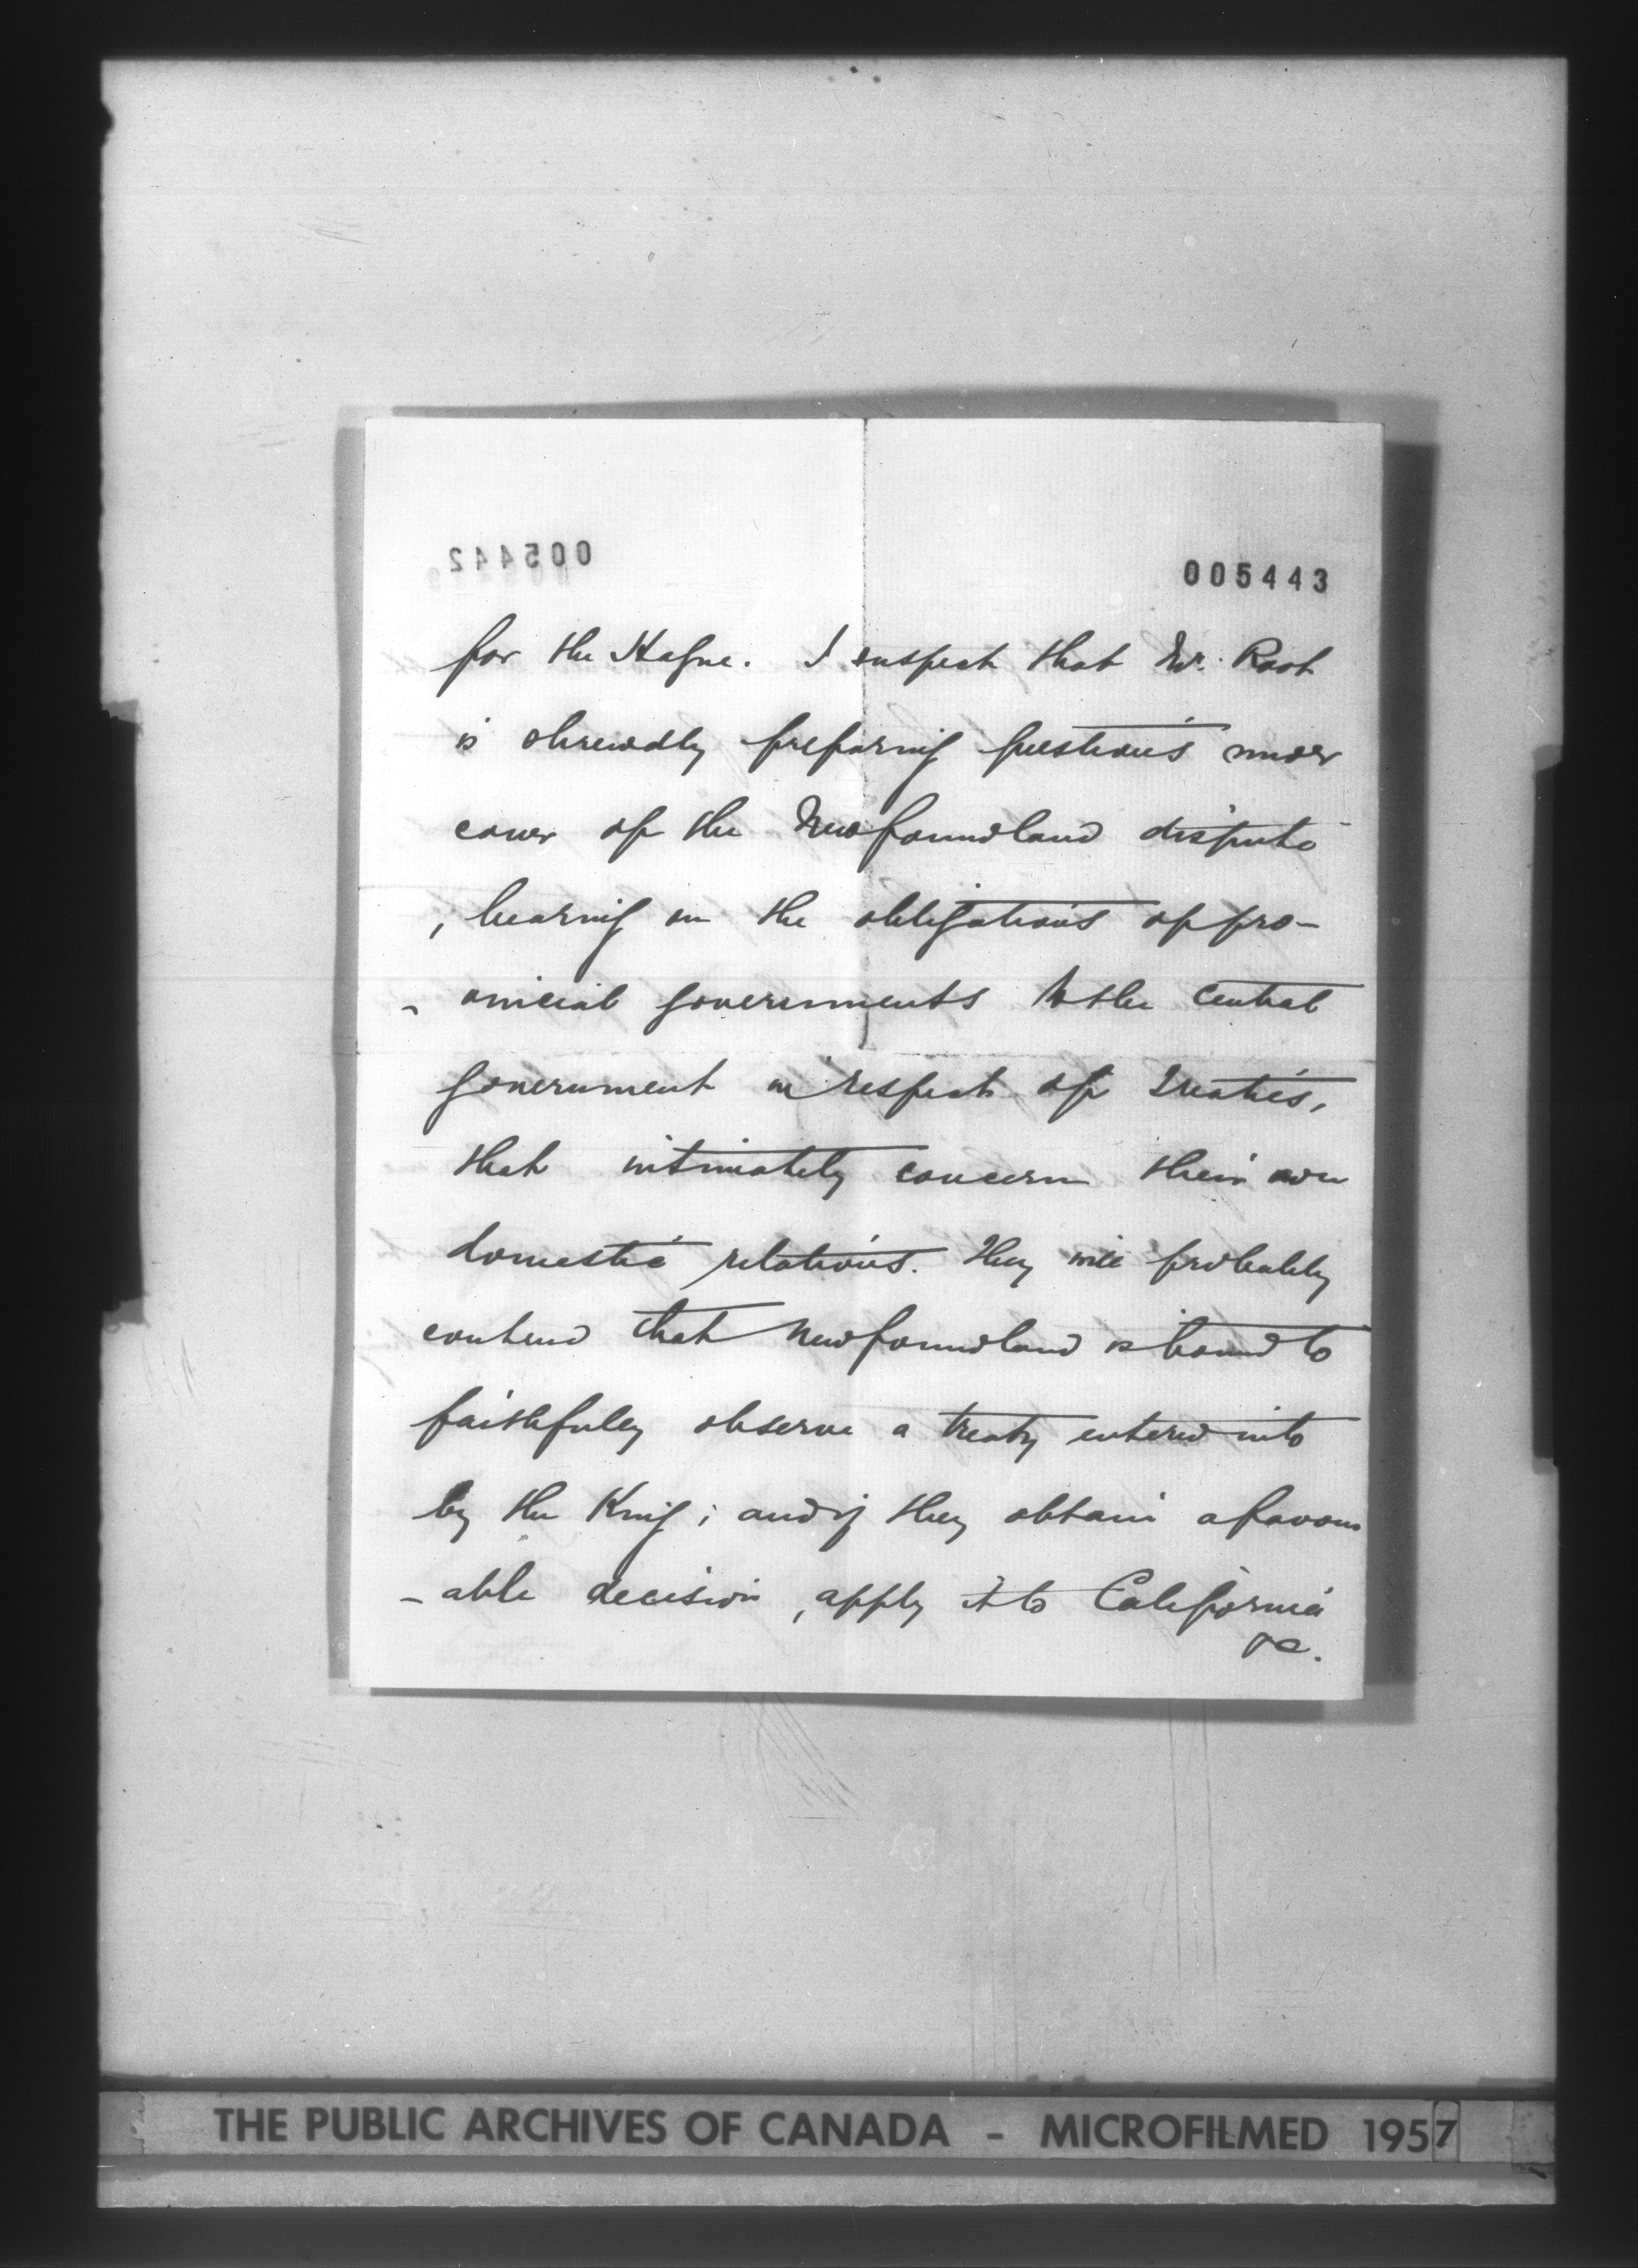 005442
005443
for the Hague. I suspect that Mr. Root
is shrewdly preparing questions under
cover of the Newfoundland dispute
, bearing on the obligations of pro-
- vincial governments to the central
government in respect of treaties,
that intimately concern their own
domestic relations. They will probably
contend that Newfoundland is bound to
faithfully observe a treaty entered into
by the King; and if they obtain a favour
- able decision, apply it to California
&c.
THE PUBLIC ARCHIVES OF CANADA - MICROFILMED 1957